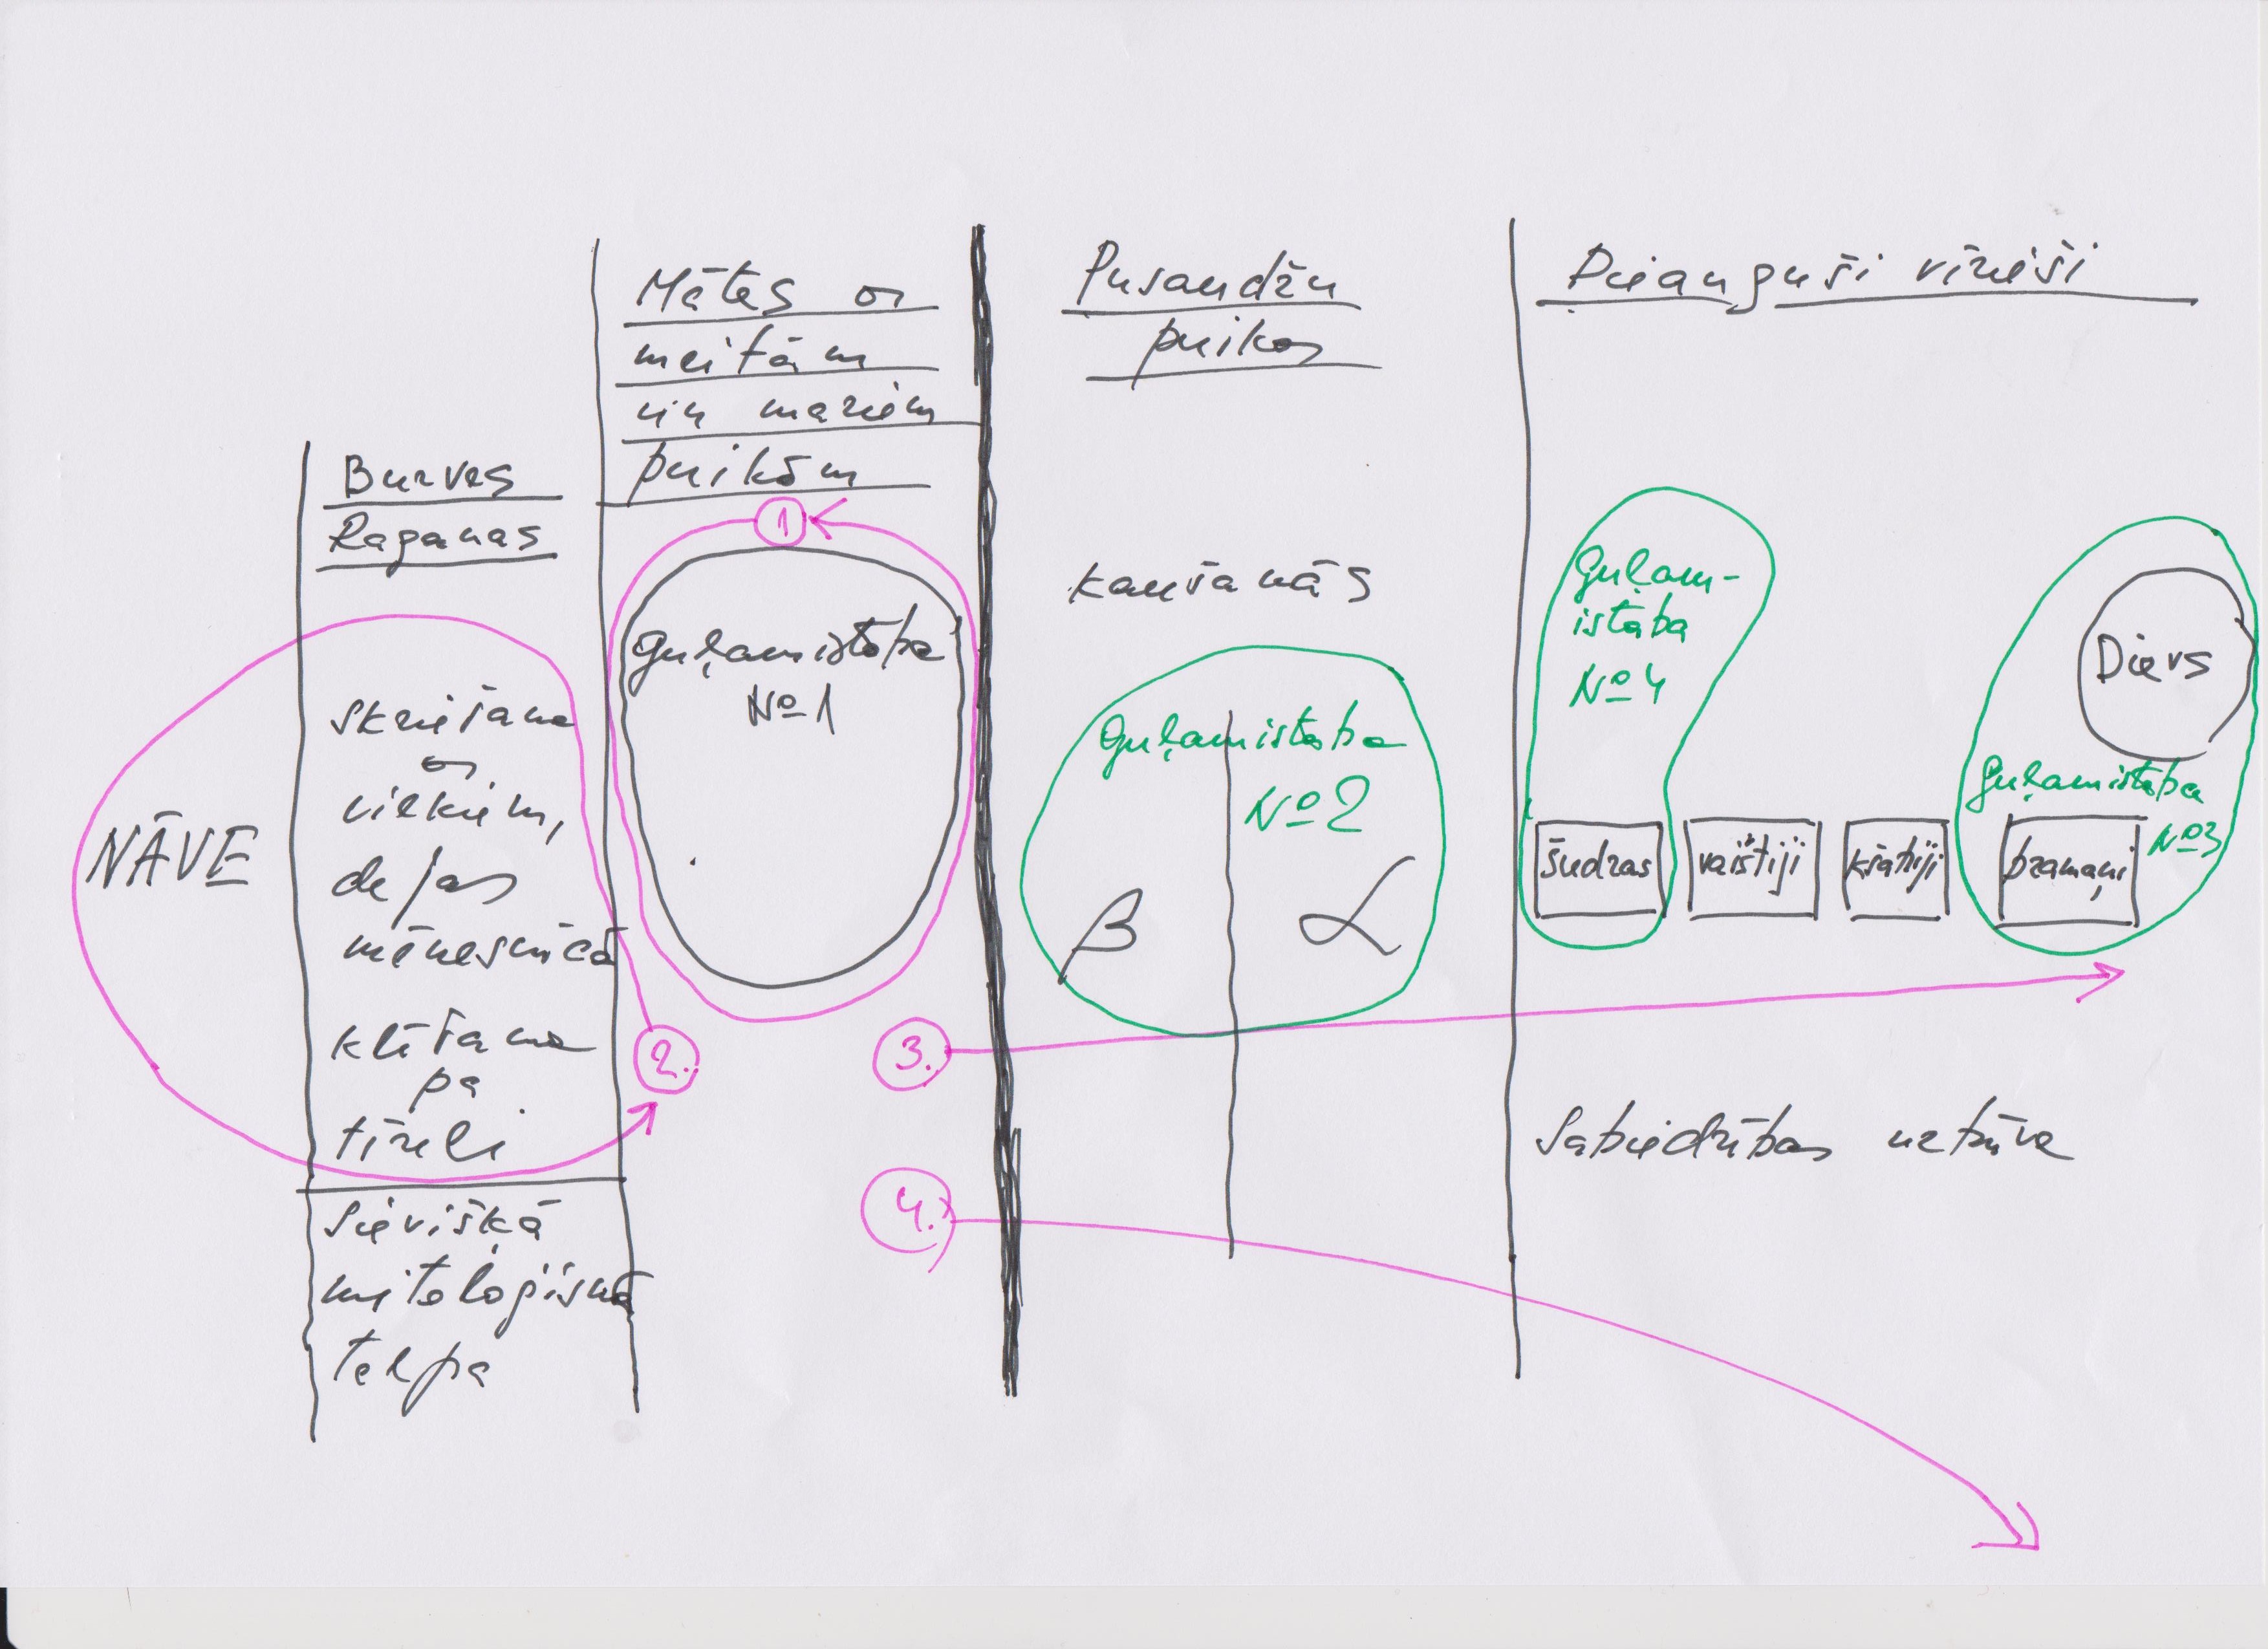 Burves
Raganas
NĀVE
skriešana
ar
vilkiem,
dejas
mēnesnīcā
klīšana
pa
tīreli
Sievišķā
mitoloģiskā
telpa
Mātes ar
meitām
un maziem
puikām
1
Guļamistaba
№1
2.
3.
4.
Pusaudžu
puikas
kaušanās
Guļamistaba
№2
β
α
Pieauguši vīrieši
Guļam-
istaba
№4
Dievs
Guļamistaba
№3
šudras
vaišiji
kšatriji
bramaņi
Sabiedrības uzbūve